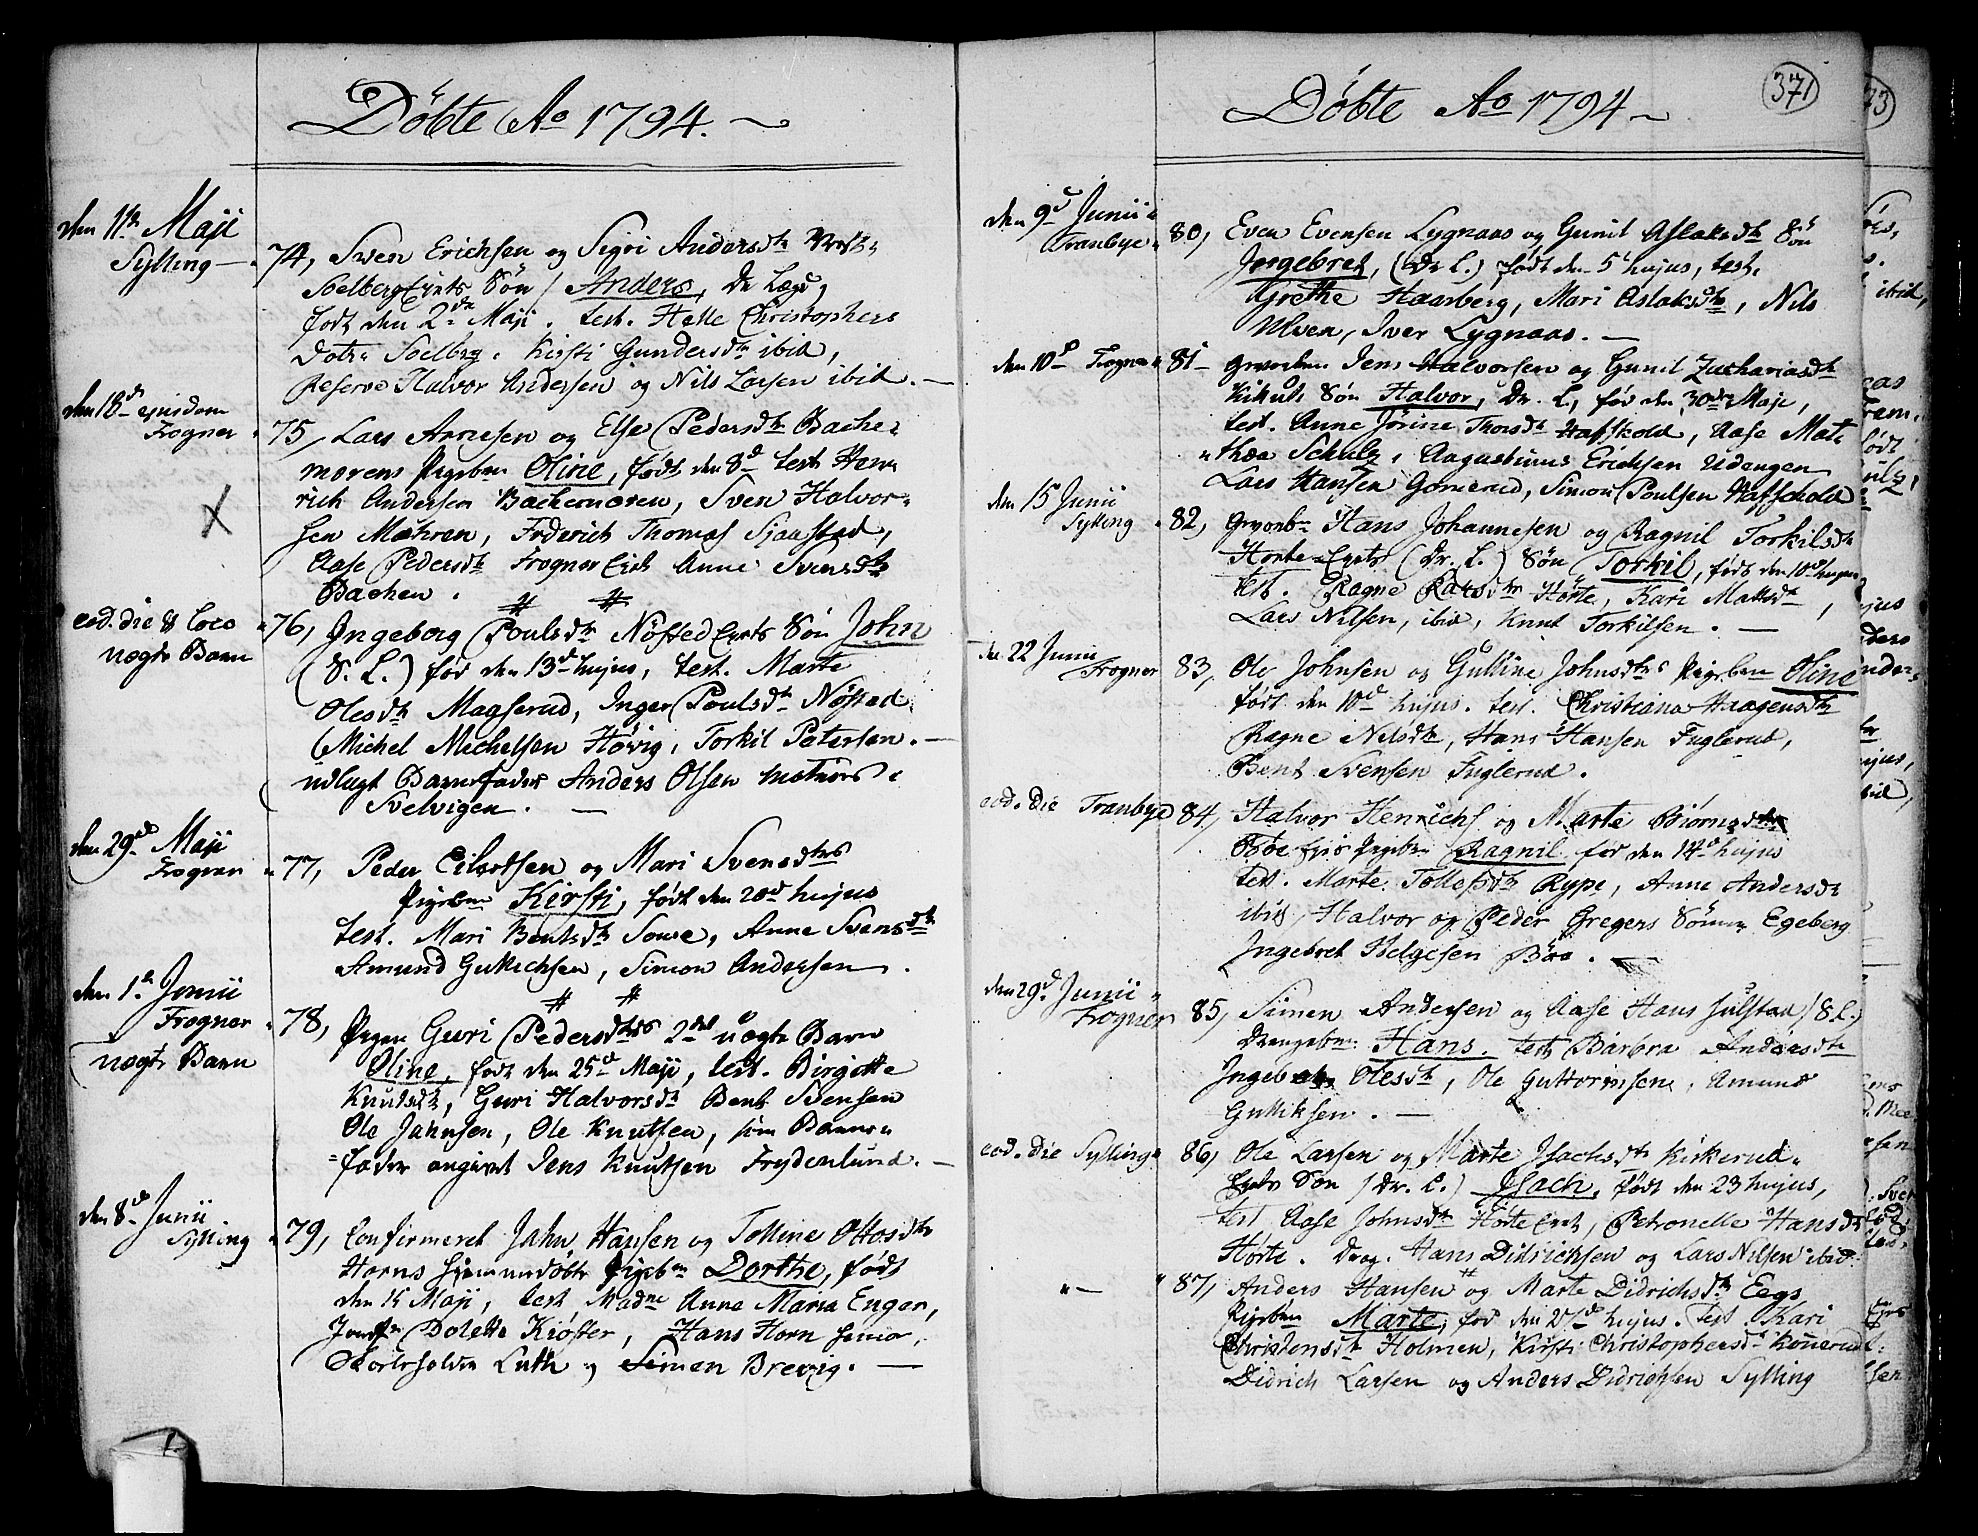 Döbte Ao 1794.
den 11te Maji
Sylling
74, Swen Erichsen og Sigri Andersdtr Vest-
Soelberg Eyets Sön / Anders, Dr Læg,
födt den 2de Maji. test. Helle Christophers
Dotr Soelberg, Kirsti Gundersdtr ibid,
Reserve Halvor Andersen og Nils Larsen ibid.
den 18de ejusdem
Frogner
75, Lars Arnesen og Else Pedersdtr Bache-
morens Pigebn Oline, födt den 8de test Hen-
rich Andersen Bachemoren, Sven Halvor-
sen Mæhren, Frderich Thomas Sjaastad,
Aase Pedersdtr Frogner Eiet Anne Svensdtr
Bachen.
eod. die & Loco
uægte Barn
76, Ingeborg Poulsdtr Nösted Eyets Sön John
(S. L.) föd den 13de hujus, test. Marte
Olesdtr Magserud, Inger Poulsdtr Nösted,
Michel Michelsen Hövig, Torkil Petersen.
udlagt Barnefader Anders Olsen matros
Svelvigen.
den 29de Maji
Frogner
77, Peder Eilertsen og Mari Svensdtrs
Pigebn Kirsti, födt den 20de hujus
test. Mari Bentsdtr Sowe, Anne Svensdtr
Amund Gullichsen, Simon Andersen.
den 1te Junii
Frogner
uægte Barn
78, Pigen Guri Pedersdtrs 2det uægte Barn
Oline, födt den 25de Maji, test. Birgitte
Knutsdtr, Guri Halvorsdtr Bent Svensen
Ole Jahnsen, Ole Knutsen, som Barne-
fader angivet Jens Knutsen Frydenlund.
den 8de Junii
Sylling
79, Confirmeret Jahn Hansen og Tolline Ottosdtr
Horns hjemmedöbte Pigebn Dorthe, födt
den 15 Maji, test Madme Anne Maria Enger,
Jomfr Dolette Kiöster, Hans Horn senior,
Luth og Simen Brevig.
Döbte Ao 1794
371
den 9de Junii
Tranbye
80, Even Evensen Lygnaas og Gunil Aslaksdtr Sön
Ingebret, (Dr L.) födt den 5te hujus, test.
Grethe Haarberg, Mari Aslaksdtr, Nils
Ulven, Iver Lygnaas.
den 10de Frogner
81 Gevorben Jens Halvorsen og Gunil Zachariasdtr
Kikuts Sön Halvor, Dr. L, föd den 30de Maji,
test. Anne Jörine Thorsdtr Haffskold, Aase Mat-
thea Schulz, Augustinus Erichsen Udengen
Lars Hansen Gomerud, Simon Poulsen Haffskold
den 15 Junii
Sylling
82, Gevorbn Hans Johannesen og Ragnil Torkilsdtr
Horte Eyets (Dr. L.) Sön Torkil, födt den 10de hujus
test. Ragne Larsdtr Hörte, Kari Matsdtr,
Lars Nilsen, ibid, Knut Torkilsen.
den 22 Junii
Frogner
83, Ole Johnsen og Gulline Johnsdtrs Pigebn Oline
födt den 10de hujus. test. Christiana Haagensdtr
Ragne Nilsdtr, Hans Hansen Fuglerud,
Bent Svensen Fuglerud.
eod. die Tranbye
84, Halvor Henrichs og Marte Biörnsdtr
Böe Pigebn Ragnil föd den 14de hujus
test. Marte Tollefsdtr Rype, Anne Andersdtr
ibid, Halvor og Peder Gregers Sönner Egeberg
Ingebret Helgesen Böe.
den 29de Junii
Frogner
85, Simen Andersen og Aase Hans Julstad / S L.)
Drengebn Hans. test Barbra Andersdtr
Ingeb Olesdtr, Ole Guttormsen, Amund
Gulliksen.
eod. die Sylling
86, Ole Larsen og Marte Isachsdtr Kirkerud-
Eyets Sön / Dr. L.) Isach, födt den 23 hujus,
test Aase Johnsdtr Hörte Eiet, Petronelle Hansd
Hörte. Drag. Hans Didrichsen og Lars Nilsen ibid.
87, Anders Hansen og Marte Didrichsdtr Eegs
Pigebn Marte, föd den 27de hujus. Test. Kari
Christensdtr Holmen, Kirsti Christophersdtr Konnerud
Didrich Larsen og Anders Didrichsen Sylling